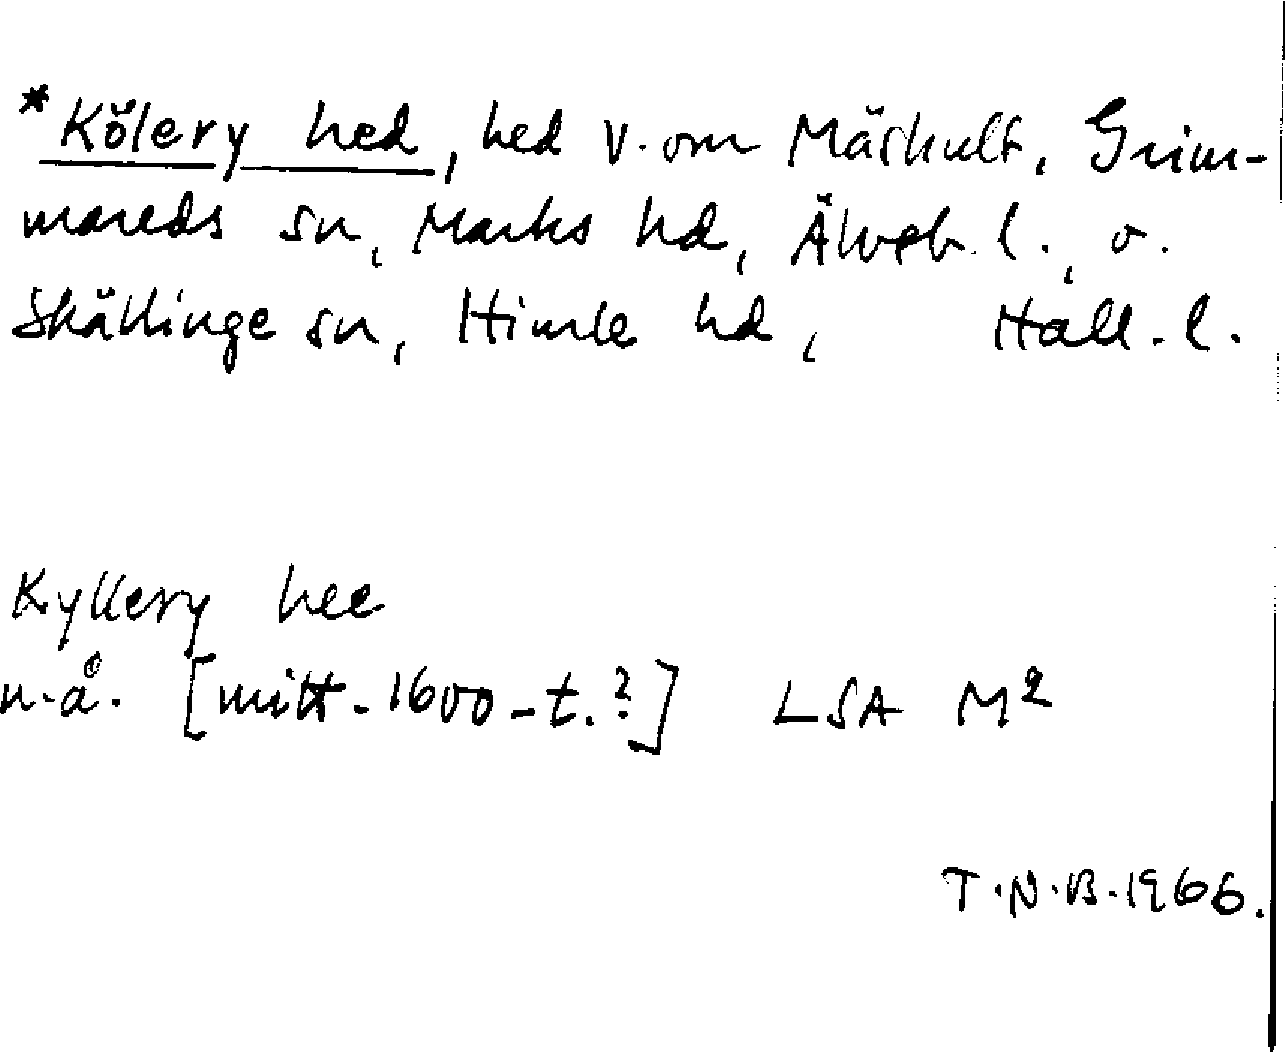 *Kölery hed, hed v. om Märkult, Grim-
mareds sn, Marks hd, Älvsb. l., o.
Skällinge sn, Himle hd, Hall. l.
Kyllery hee
u.å. [mitt-1600-t.?] LSA M2
T.N.B. 1966.